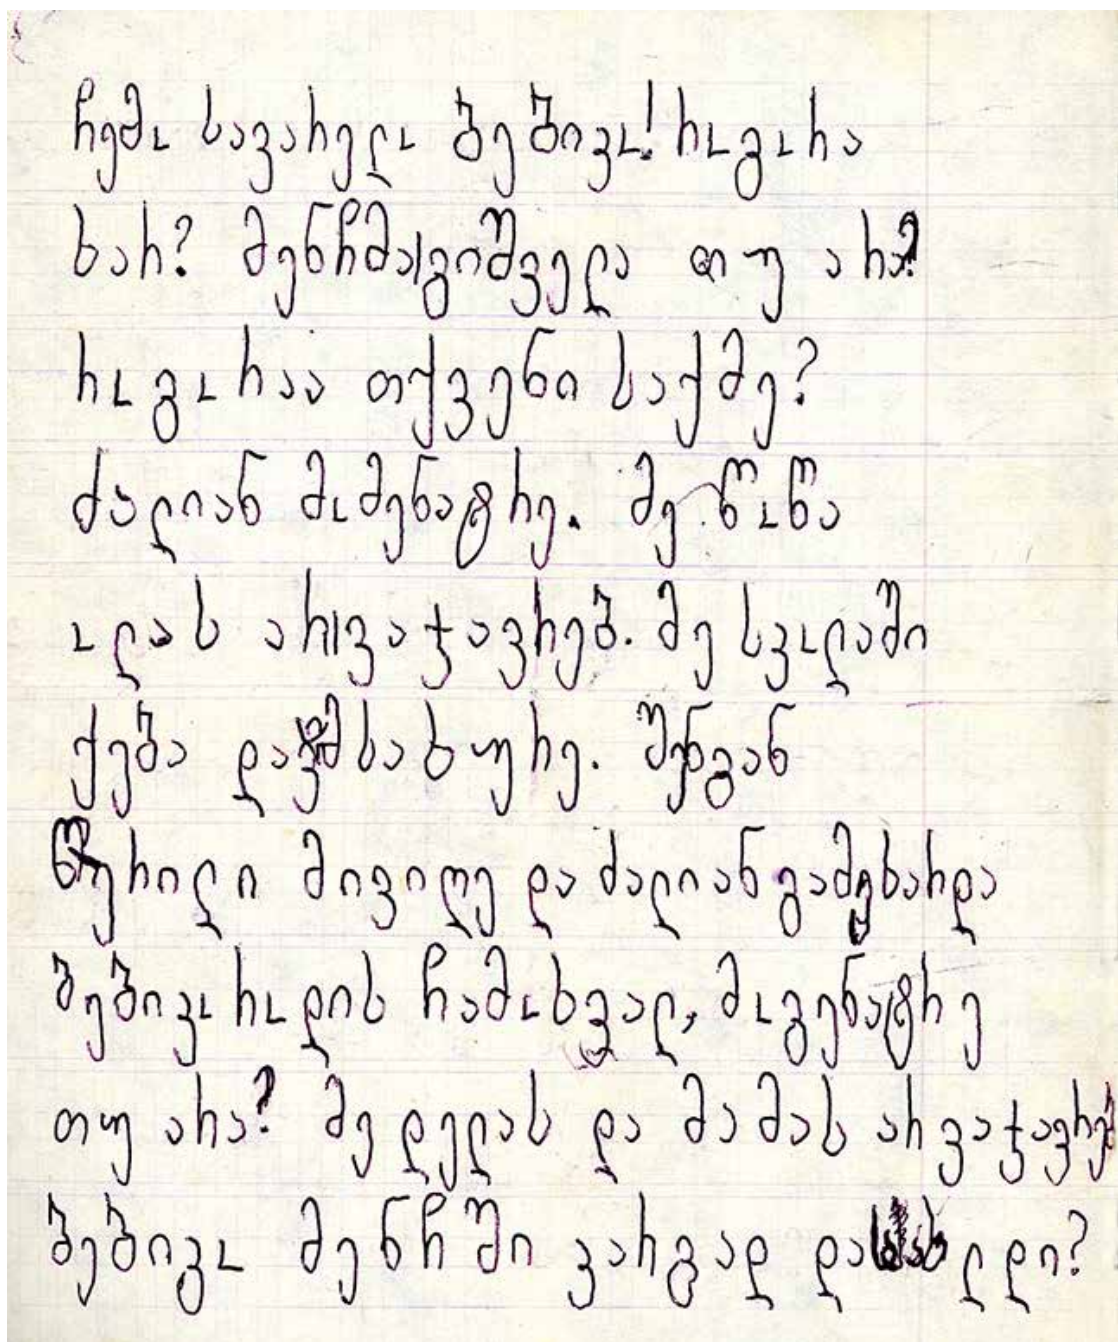 ჩემო სავარელო ბებიკო! როგორა
ხარ? მენჩმა გიშველა თუ არა?
როგორაა თქვენი საქმე?
ძალიან მომენატრე. მე წოწა
ოლას არ ვაჯავრებ. მე სკოლაში
ქება შენგან
წერილი მივიღე და ძალიან გამეხარდა
ბებიკო როდის ჩამოხვალ, მოგენატრე
თუ არა? მე დედას და მამას არ ვაჯავრებ
ბებიკო მენჩში კარგად დასახლდი?